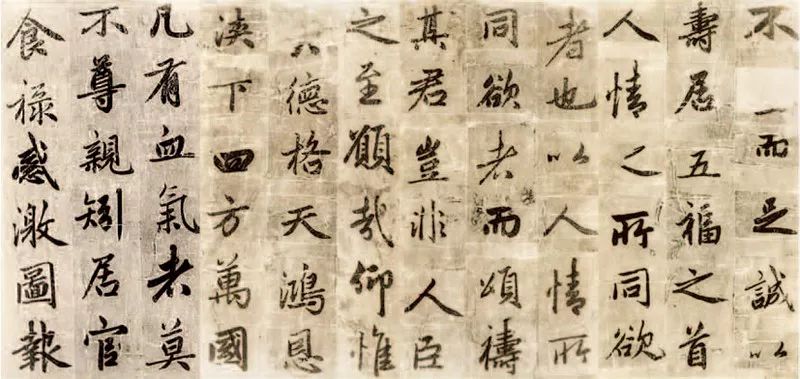 不一而足誠以
壽居五福之首
人情之所同欲
者也以人情所
同欲者而頌禱
其君豈非人臣
之至願哉仰惟
德格天鴻恩
浹下四方萬國
凡有血氣者莫
不尊親矧居官
食祿感激圖報